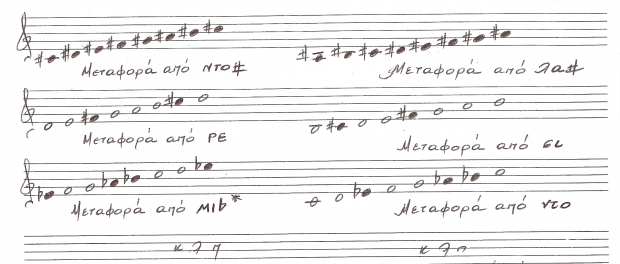 Μεταφορά από ντο# Μεταφορά από λα#
Μεταφορά από ΡΕ Μεταφορά από σι
Μεταφορά από ΜΙb* Μεταφορά από ντο
κ λ π κ λ π